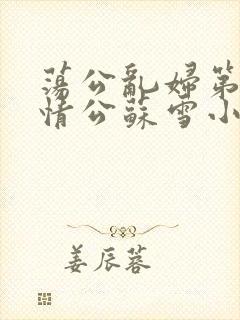 蕩公亂婦第
情公蘇雪小
姜辰蓉